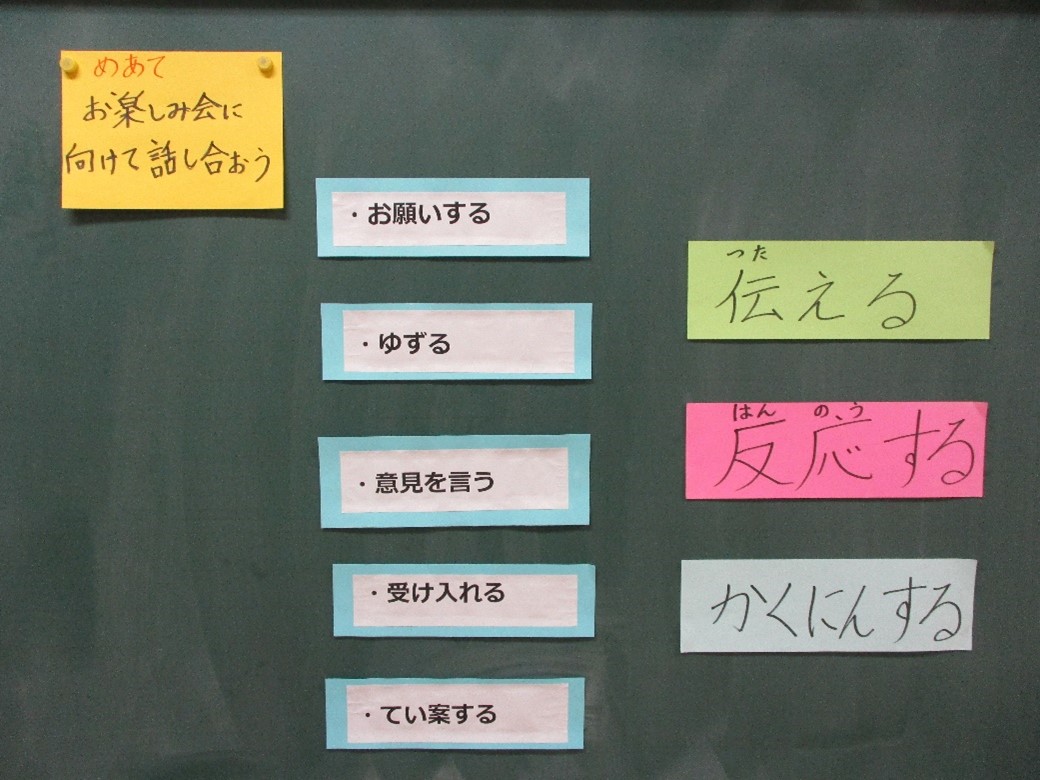 めあて
お楽しみ会に
向けて話し合おう
・お願いする
・ゆずる
・意見を言う
・受け入れる
・てい案する
つた
伝える
はん のう
反応する
かくにんする